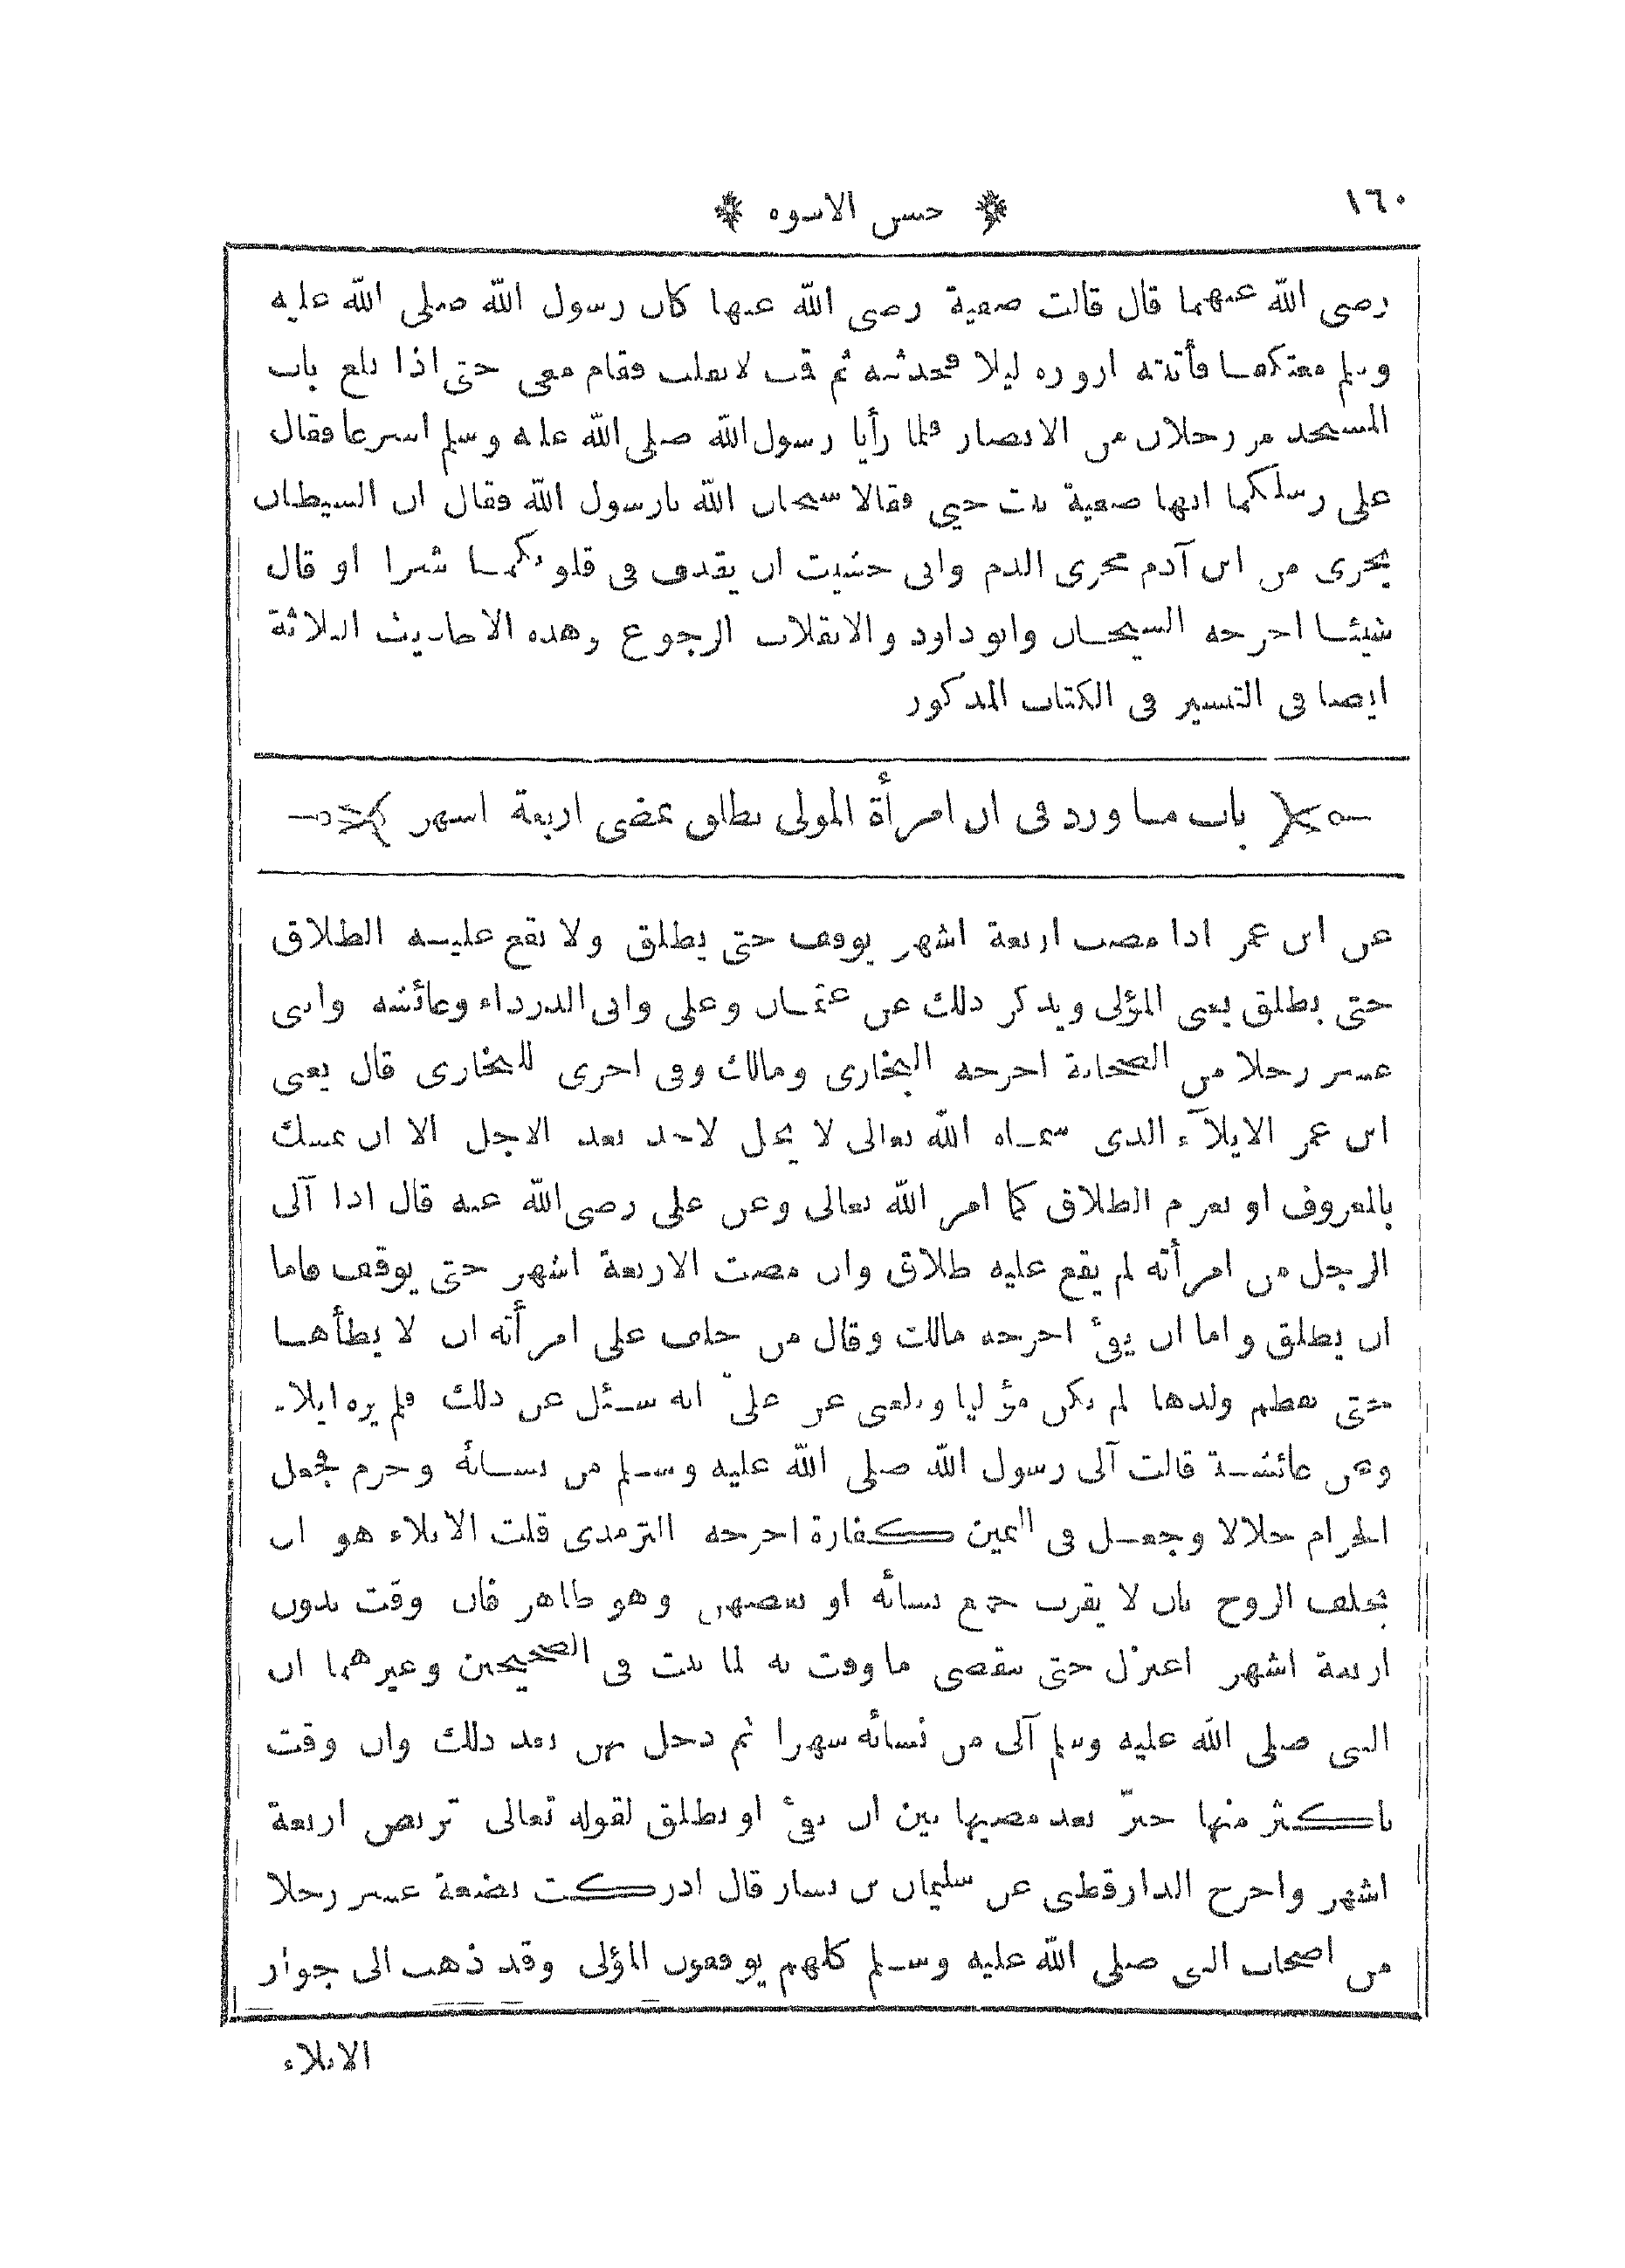 ١٦٠
حسن الاسوه
رضى الله عنهما قال قالت صفية رضى الله عنها كان رسول الله صلى الله عليه
وسلم معتكفا فأتيته ازوره ليلا فحدثته ثم قمت لانقلب فقام معى حتى اذا بلغ باب
المسجد مر رجلان من الانصار فلما رأيا رسول الله صلى الله عليه وسلم اسرعا فقال
على رسلكما انها صفية بنت حيي فقالا سبحان الله يارسول الله فقال ان الشيطان
يجرى من ابن آدم مجرى الدم وانى خشيت ان يقذف فى قلوبكما شرا او قال
شيئا اخرجه الشيخان وابو داود والانقلاب الرجوع وهذه الاحاديث الثلاثة
ايضا فى التفسير فى الكتاب المذكور
باب ما ورد فى ان امرأة المولى تطلق بمضى اربعة اشهر
عن ابن عمر اذا مضت اربعة اشهر يوقف حتى يطلق ولا يقع عليه الطلاق
حتى يطلق يعنى المؤلى ويذكر ذلك عن عثمان وعلى وابى الدرداء وعائشه واثنى
عشر رجلا من الصحابة اخرجه البخارى ومالك وفى اخرى للبخارى قال يعنى
ابن عمر الايلآء الذى سماه الله تعالى لا يحل لاحد بعد الاجل الا ان يمسك
بالمعروف او يعزم الطلاق كما امر الله تعالى وعن على رضى الله عنه قال اذا آلى
الرجل من امرأته لم يقع عليه طلاق وان مضت الاربعة اشهر حتى يوقف فاما
ان يطلق واما ان يفىٔ اخرجه مالك وقال من حلف على امرأته ان لا يطأها
حتى تفطم ولدها لم يكن مؤليا وبلغنى عن علىّ انه سئل عن ذلك فلم يره ايلاء
وعن عائشة قالت آلى رسول الله صلى الله عليه وسلم من نسائه وحرم فجعل
الحرام حلالا وجعل فى اليمين كفارة اخرجه الترمذى قلت الايلاء هو ان
يحلف الزوج بان لا يقرب جميع نسائه او بعضهن وهو ظاهر فان وقت بدون
اربعة اشهر اعتزل حتى ينقضى ما وقت به لما ثبت فى الصحيحين وغيرهما ان
النبى صلى الله عليه وسلم آلى من نسائه شهرا ثم دخل بهن بعد ذلك وان وقت
باكثر منها خيرّ بعد مضيها بين ان يفىٔ او يطلق لقوله تعالى تربص اربعة
اشهر واخرج الدارقطنى عن سليمان بن يسار قال ادركت بضعة عشر رجلا
من اصحاب النبى صلى الله عليه وسلم كلهم يوقفون المؤلى وقد ذهب الى جواز
الايلاء